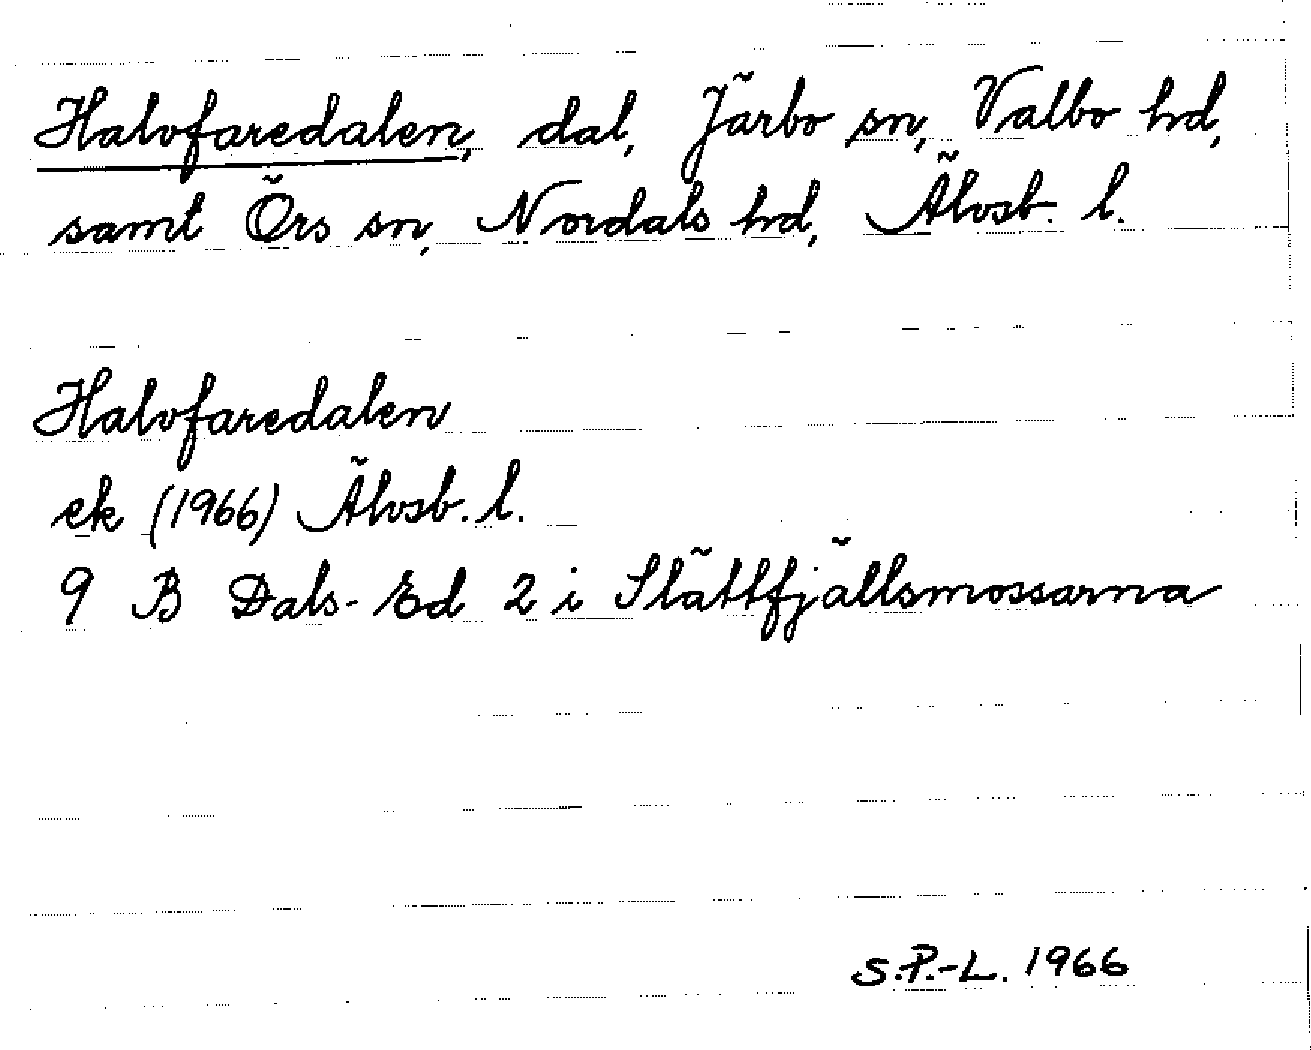 Halvfaredalen, dal, Järbo sn, Valbo hd,
samt Örs sn, Nordals hd, Älvsb. l.
Halvfaredalen
ek (1966) Älvsb. l.
9 B Dals-Ed 2 i Slättfjällsmossarna
S.P.-L. 1966